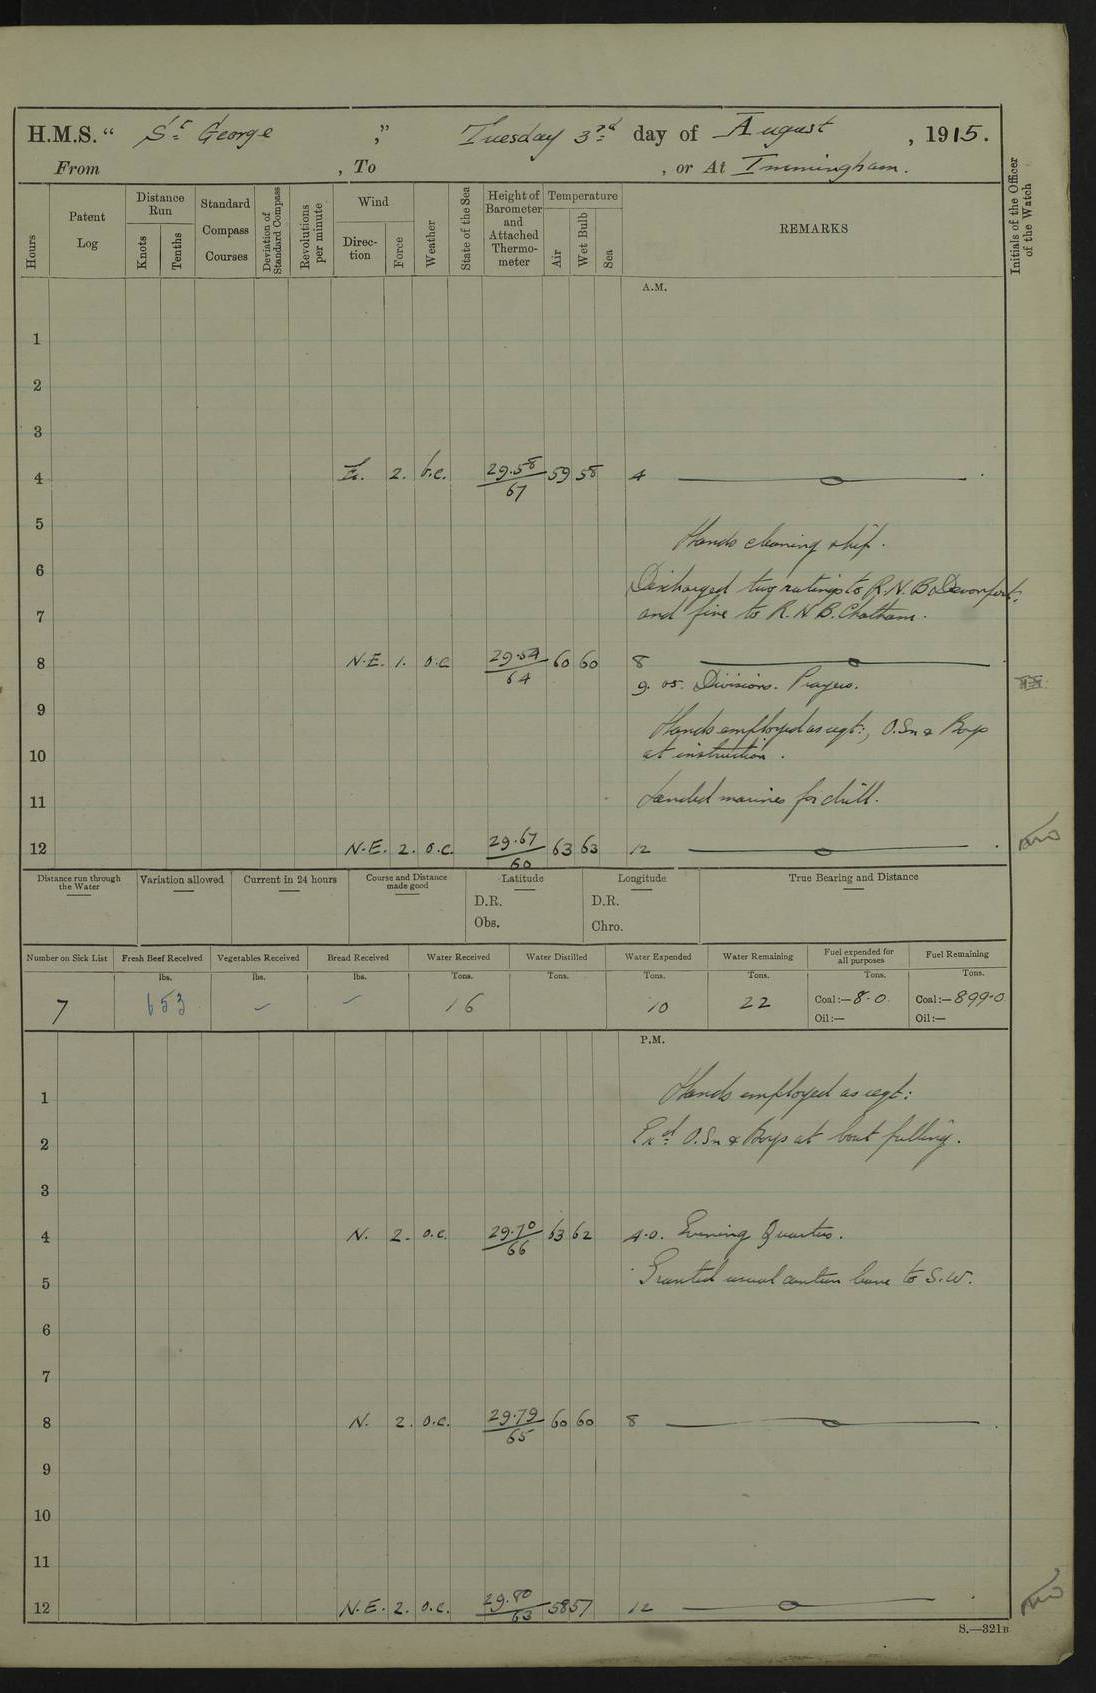 H.M.S. “ St George ,” Tuesday 3rd day of August , 1915.
From , To , or At Immingham.
Hours
Patent Log
Distance Run
Knots
Tenths
Standard Compass Courses
Deviation of Standard Compass
Revolutions per minute
Wind
Direc-tion
Force
Weather
State of the Sea
Height of Barometer and Attached Thermo-meter
Temperature
Air
Wet Bulb
Sea
REMARKS
Initials of the Officer of the Watch
A.M.
1
2
3
4 E. 2. b.c. 29.58/67 59 58 4
5
Hands cleaning ship.
6
Discharged two ratings to R.N.B. Devonport,
7 and five to R.N.B. Chatham.
8 N.E. 1. o.c 29.54/64 60 60 8
9.05. Divisions. Prayers.
9
Hands employed as reqt:, O.Sn & Boys
10 at instruction.
11 Landed marines for drill.
12 N.E. 2. o.c. 29.67/60 63 63 12
Distance run through the Water
Variation allowed
Current in 24 hours
Course and Distance made good
Latitude
D.R.
Obs.
Longitude
D.R.
Chro.
True Bearing and Distance
Number on Sick List
Fresh Beef Received
Vegetables Received
Bread Received
Water Received
Water Distilled
Water Expended
Water Remaining
Fuel expended for all purposes
Fuel Remaining
lbs. lbs. lbs. Tons. Tons. Tons. Tons. Tons. Tons.
7 653 – – 16 10 22 Coal:—8.0 Coal:—899.0
Oil:— Oil:—
P.M.
1 Hands employed as reqt:
2 Exd O.Sn & Boys at boat pulling.
3
4 N. 2. o.c. 29.70/66 63 62 4.0. Evening Quarters.
5 Granted usual canteen leave to S.W.
6
7
8 N. 2. o.c. 29.79/65 60 60 8
9
10
11
12 N.E. 2. o.c. 29.80/63 58 57 12
S.—321B